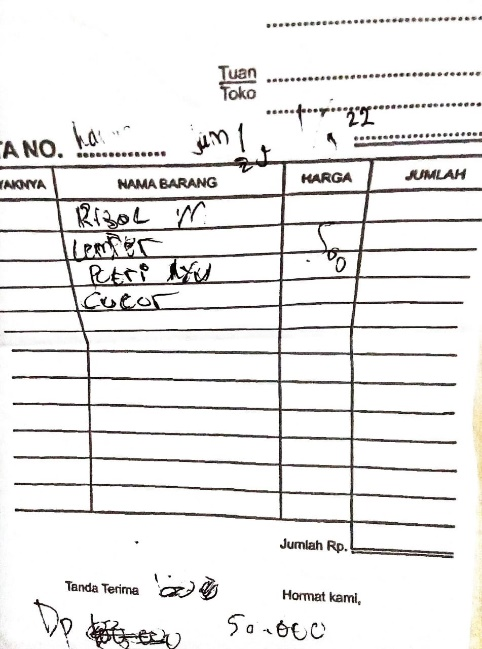 Tuan
Toko
22
TA NO.
YAKNYA NAMA BARANG HARGA JUMLAH
Rizol M
Lemper 500
Putri Ayu
Cucur
Jumlah Rp.
Tanda Terima Hormat kami,
Dp 50.000